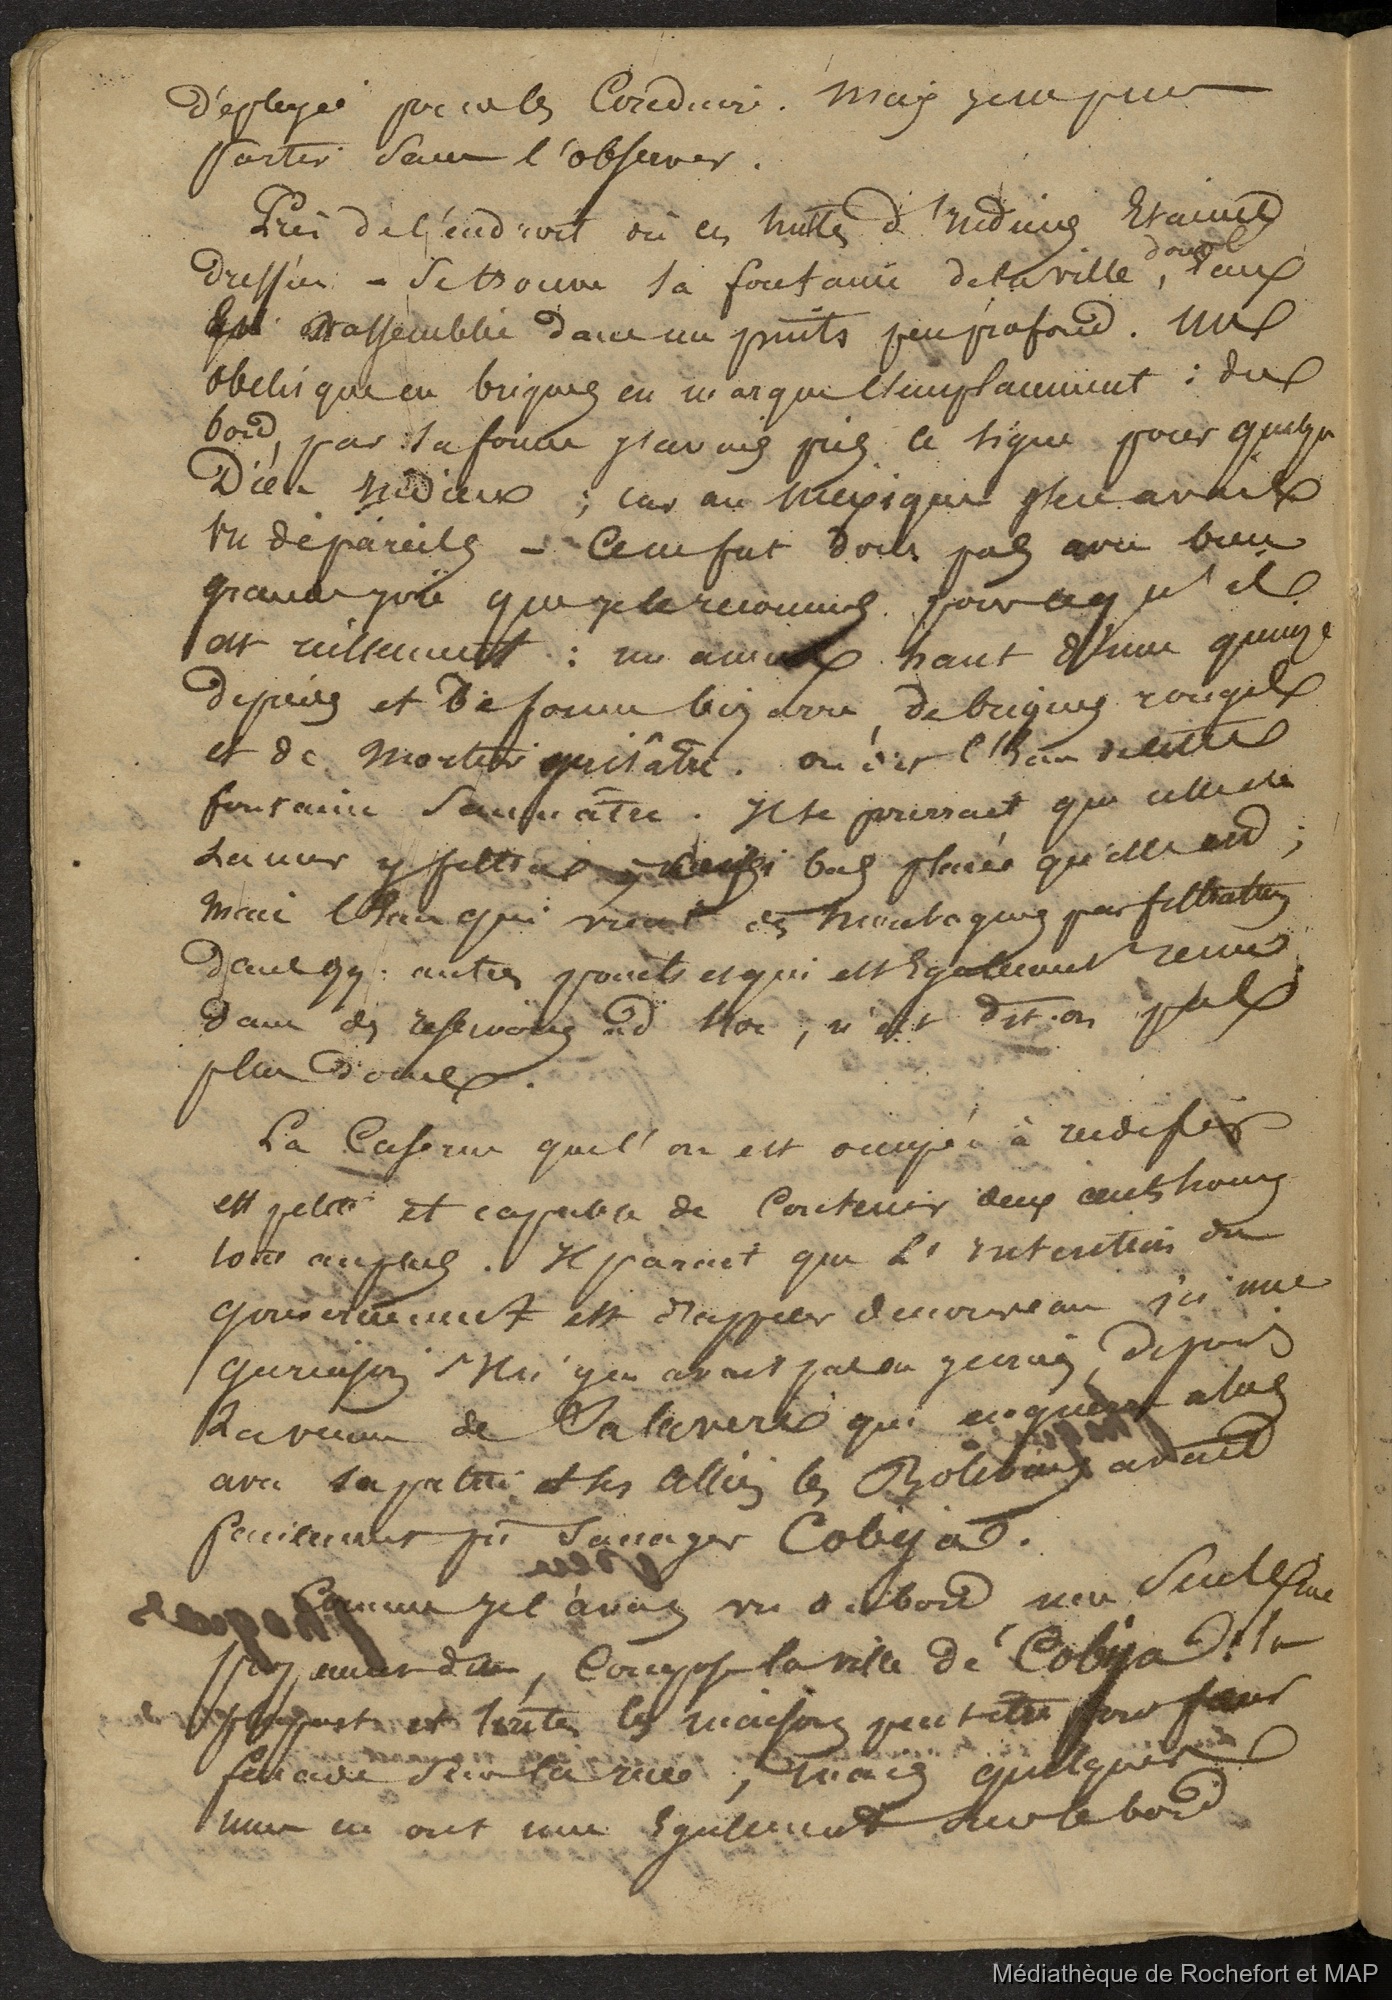 partir sans l'observer.
Près de l'endroit où ces huttes d'Indiens étaient
dressées – se trouve la fontaine de la ville, dont l'eaux
est rassemblée dans un puits peu profond. Une
obélisque en briques en marque l'emplacement : d'a
bord, par sa forme j'avais pris ce signe pour quelque
Dieu Indien ; car au Mexique j'en avais
vu de pareils – Ce ne fut donc pas avec bien
grande joie que je le reconnus pour ce qu'il
est réellement : un haut d'une quinze
de pieds et de forme bizarre, de briques rouges
et de mortier grisâtre. on dit l'Eau de cette
fontaine saumâtre. Il se pourrait que celle de
la mer y filtrât, aussi bas placée qu'elle est ;
mais l'Eau qui vient des montagnes par filtration
dans qq. autres points et qui est également tenue
dans des réservoirs ad hoc, n'est dit-on pas
plus douce.
La Caserne que l'on est occupé à réédifier
est petite et capable de contenir deux cents hommes
tout au plus. Il parait que l'intention du
gouvernement est d'appeler de nouveau ici une
garnison. Il n'y en avait pas eu depuis
la venue de Salaverri qui en guerre alors
avec sa patrie et ses alliés les Boliviens avait
facilement pu saccager Cobija.
Comme je l'avais vu du bord une seule rue
, compose la ville de Cobija. la
plupart et toutes les maisons peut-être ont leur
façade sur la rue ; mais quelques
unes en ont une également sur le bord
Médiathèque de Rochefort et MAP